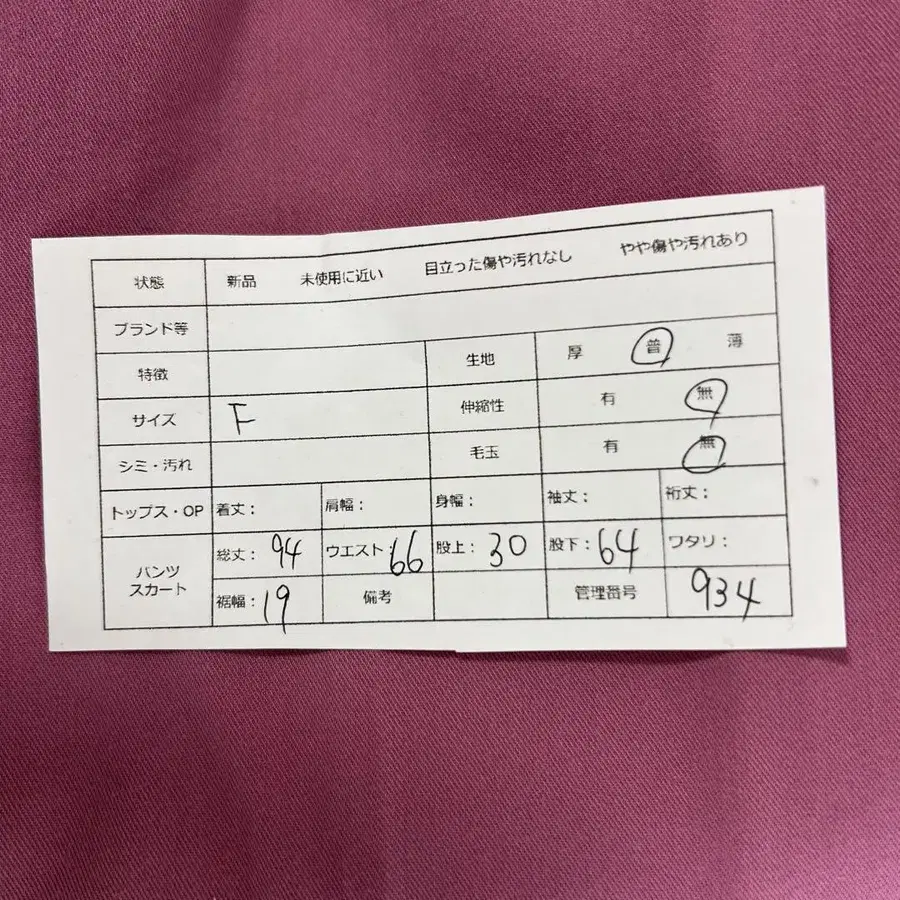 状態 新品 未使用に近い 目立った傷や汚れなし やや傷や汚れあり
ブランド等
特徴 生地 厚 普 薄
サイズ F 伸縮性 有 無
シミ・汚れ 毛玉 有 無
トップス・OP 着丈: 肩幅: 身幅: 袖丈: 裄丈:
パンツ スカート 総丈: 94 ウエスト: 66 股上: 30 股下: 64 ワタリ:
裾幅: 19 備考 管理番号 934